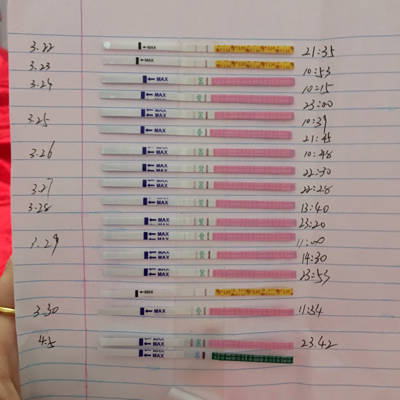 3.22 MAX 21:35
3.23 MAX 10:53
3.24 MAX 10:15
MAX 23:00
3.25 MAX 10:39
MAX 21:45
3.26 MAX 10:48
MAX 22:30
3.27 MAX 22:28
3.28 MAX 13:40
MAX 23:20
3.29 MAX 11:00
MAX 14:30
MAX 23:53
MAX
3.30 MAX 11:34
4.5 MAX 23.42
MAX